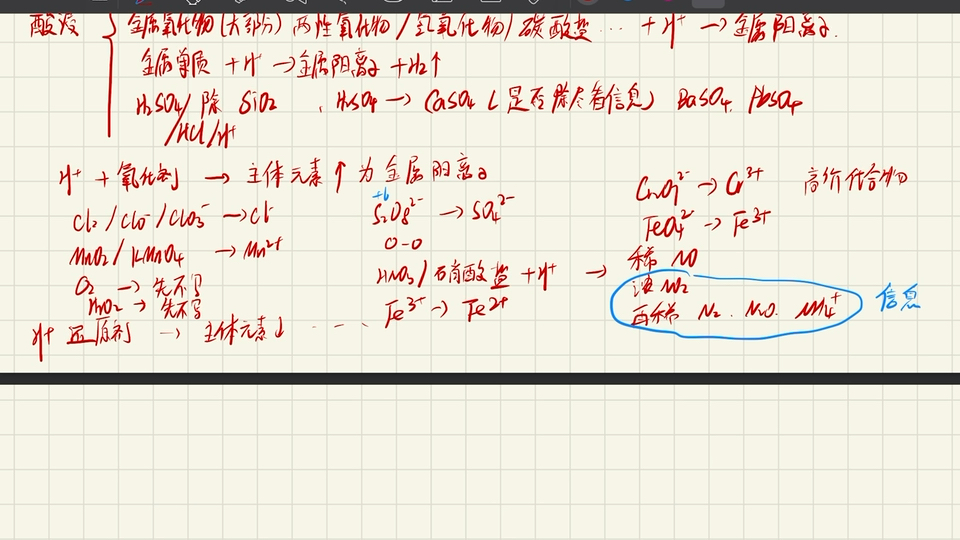 酸浸 { 金属氧化物(大部分) 两性氧化物/氢氧化物/碳酸盐 … + H⁺ → 金属阳离子.
金属单质 + H⁺ → 金属阳离子 + H₂↑
H₂SO₄/ 除 SiO₂ 、H₂SO₄ → CaSO₄ (是否除尽看信息) BaSO₄. PbSO₄
/HCl/H⁺
H⁺ + 氧化剂 → 主体元素↑为金属阳离子
Cl₂/ClO⁻/ClO₃⁻ → Cl⁻
MnO₂/KMnO₄ → Mn²⁺
O₂ → 先不写
H₂O₂ → 先不写
+6
S₂O₈²⁻ → SO₄²⁻
O-O
HNO₃/硝酸盐 + H⁺ → 稀 NO
浓 NO₂
再稀 N₂. N₂O. NH₄⁺ 信息
Fe³⁺ → Fe²⁺
Cr₂O₇²⁻ → Cr³⁺ 高价化合物
FeO₄²⁻ → Fe³⁺
H⁺ 还原剂 → 主体元素↓ ....